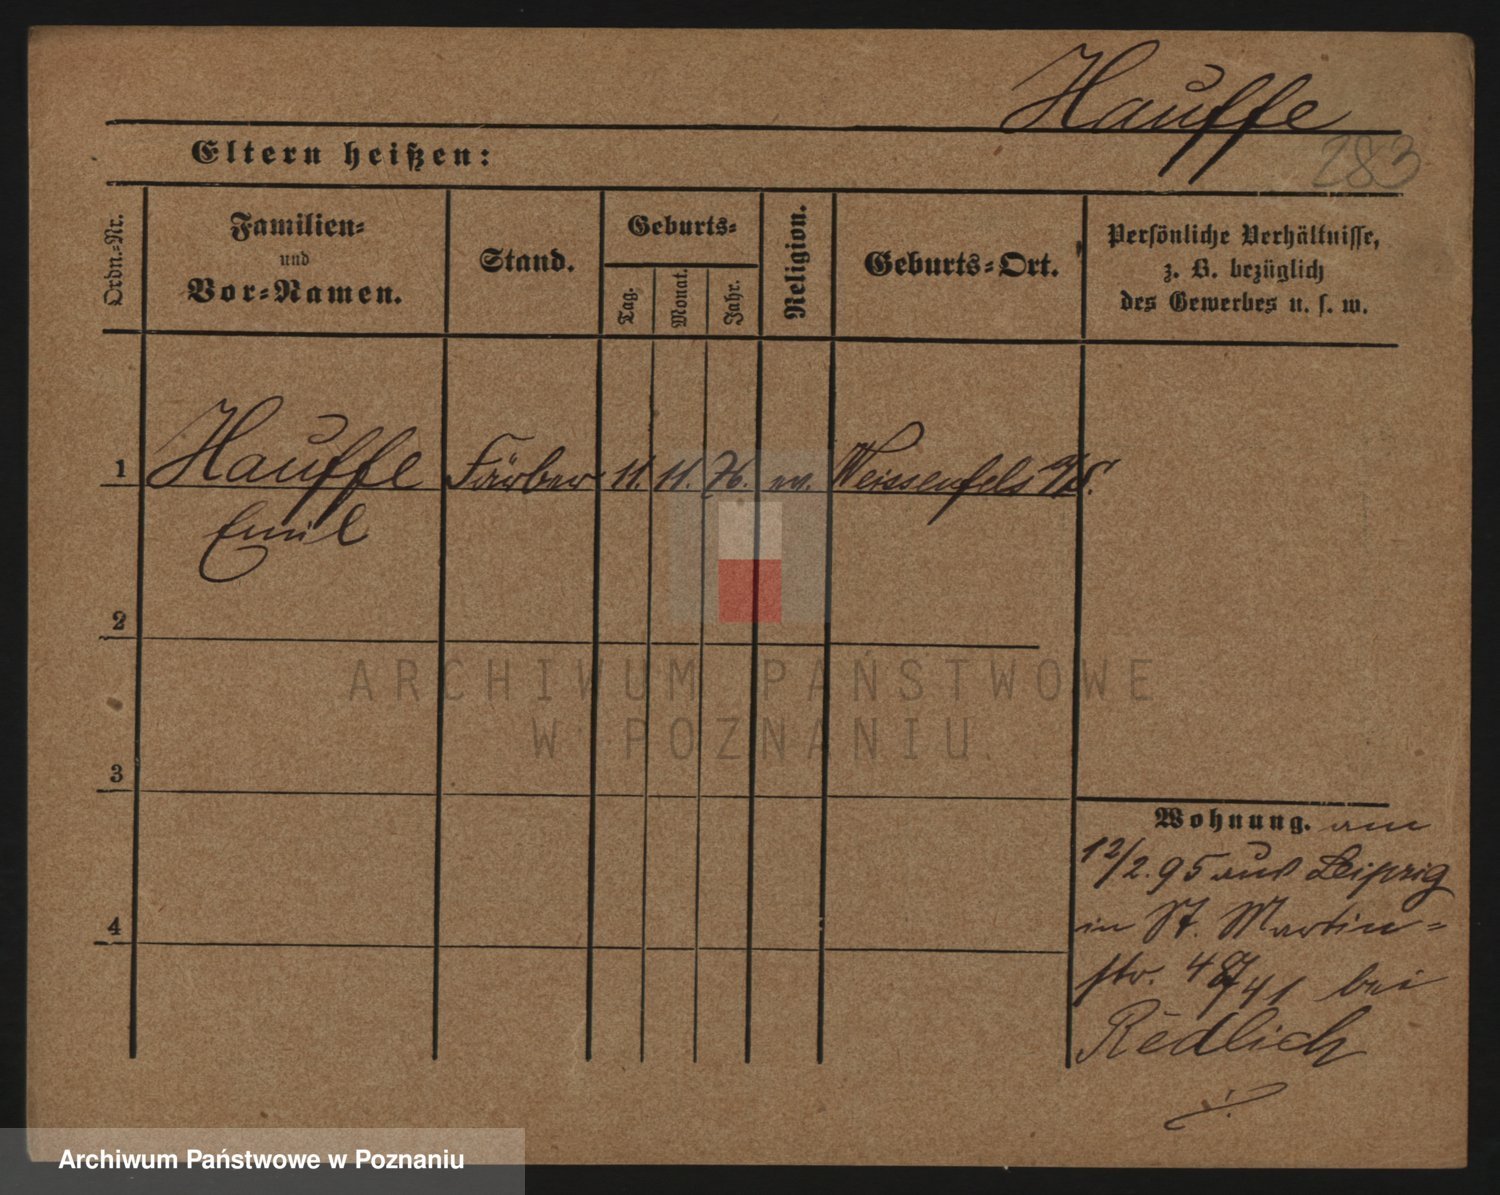 Hauffe
283
Eltern heißen:
Ordn.-Nr.
Familien-
und
Vor-Namen.
Stand.
Geburts-
Tag.
Monat.
Jahr.
Religion.
Geburts-Ort.
Persönliche Verhältnisse,
z. B. bezüglich
des Gewerbes u. s. w.
1 Hauffe Färber 11. 11. 76. ev. Weissenfels a/S.
Emil
2
3
4
Wohnung. am
12/2.95 aus Leipzig
in St. Martin-
str. 41 bei
Redlich
ARCHIWUM PAŃSTWOWE
W POZNANIU.
Archiwum Państwowe w Poznaniu